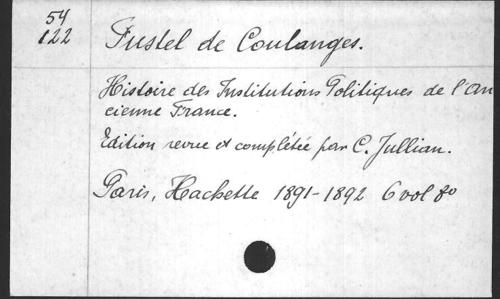 54
122
Fustel de Coulanges.
Histoire des Institutions Politiques de l'An
cienne France.
Edition revue et complétée par C. Jullian.
Paris, Hachette 1891-1892 6 vol 8o